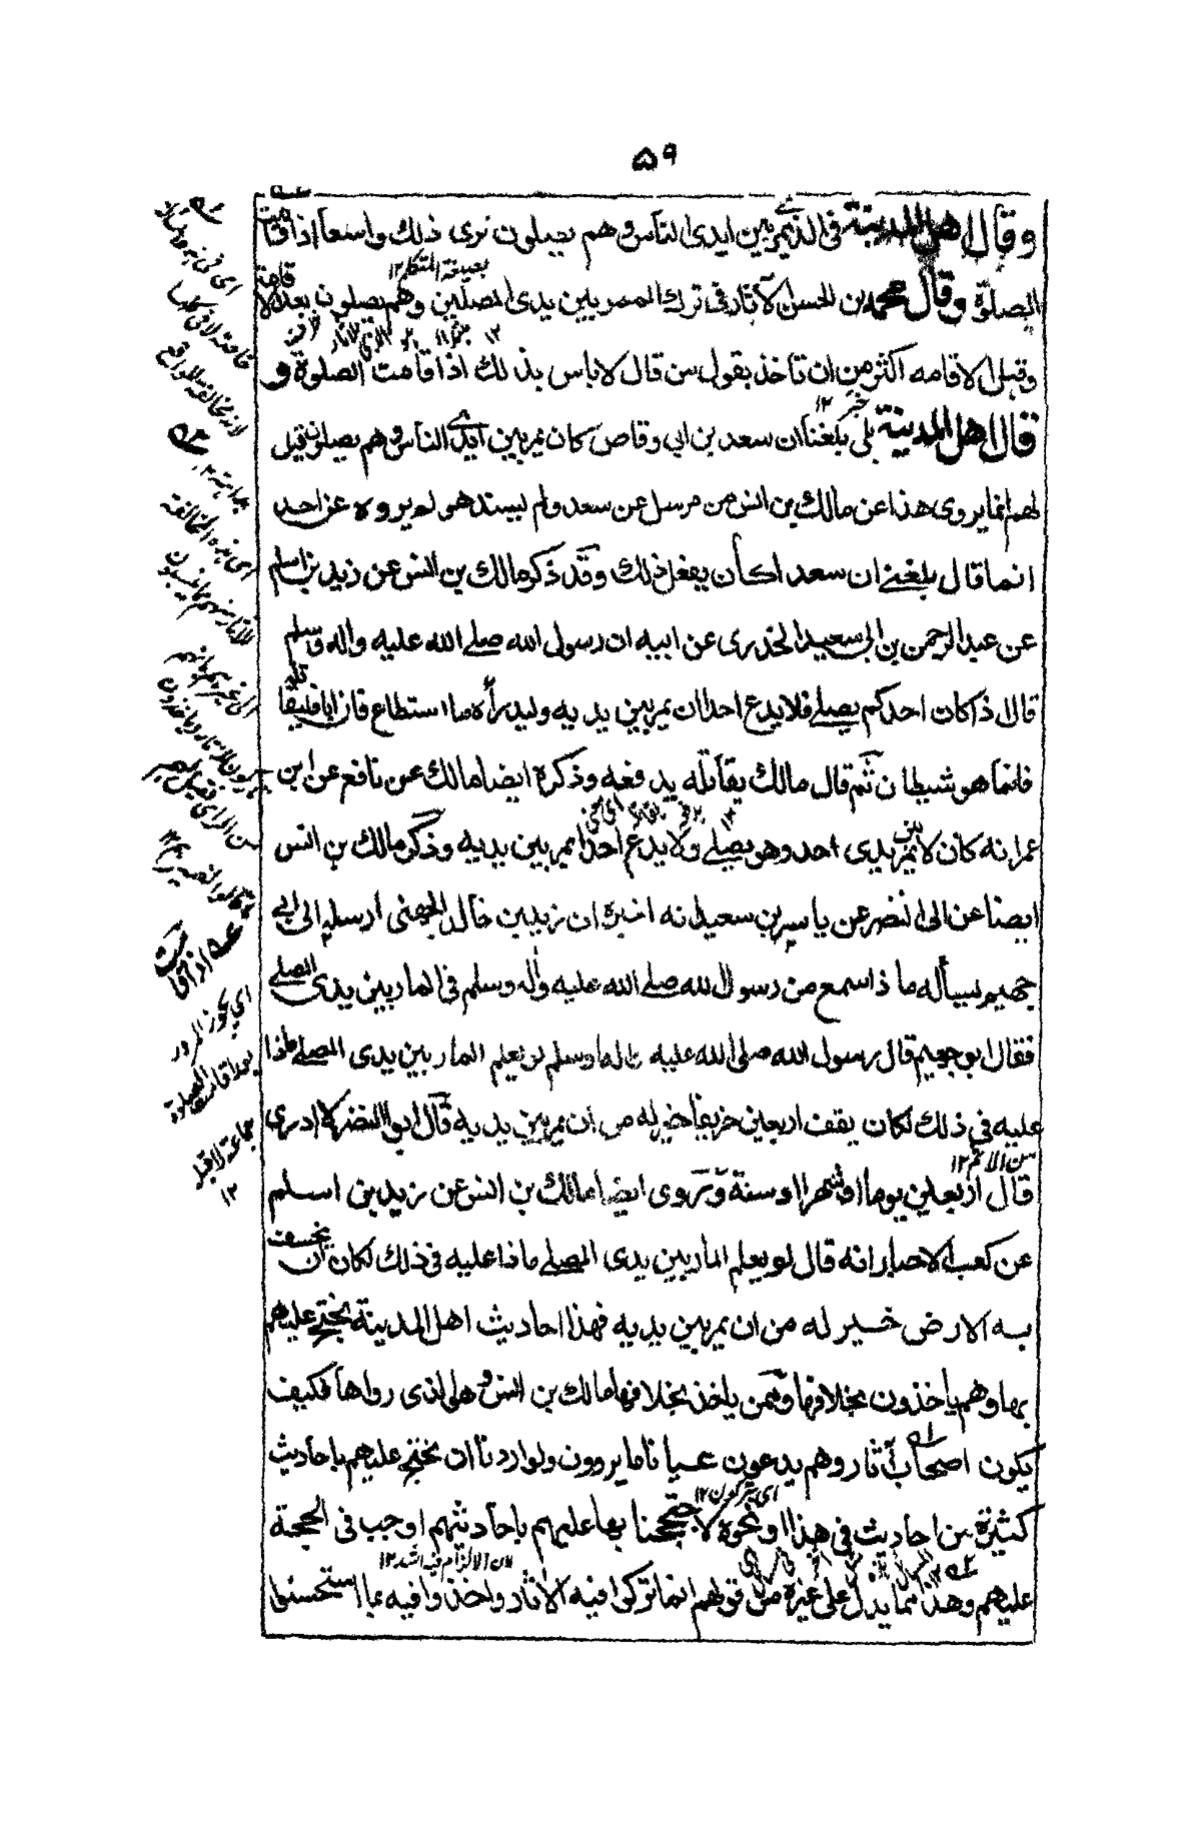 ۵۹
وقال اهل المدينة في الذي يمر بين ايدى الناس وهم يصلون نرى ذلك واسعا اذا قامت
الصلوة وقال محمد بن الحسن الآثار في ترك الممر بين يدى المصلين وهم يصلون بعد الاقامة
وقبل الاقامه اكثر من ان تاخذ بقول من قال لا باس بذلك اذا قامت الصلوة و
قال اهل المدينة بلى بلغنا ان سعد بن ابي وقاص كان يمر بين ايدى الناس وهم يصلون قيل
لهم انما يروى هذا عن مالك بن انس من مرسل عن سعد ولم يسند هو لم يروه عن احد
انما قال بلغنى ان سعدا كان يفعل ذلك وقد ذكر مالك بن انس عن زيد بن اسلم
عن عبد الرحمن بن ابى سعيد الخدرى عن ابيه ان رسول الله صلى الله عليه واله وسلم
قال ذا كان احدكم يصلى فلا يدع احدا ان يمر بين يديه وليدرأه ما استطاع فان ابا فليقاتله
فانما هو شيطان ثم قال مالك يقاتله يدفعه وذكره ايضا مالك عن نافع عن ابن
عمر انه كان لا يمر بين يدى احد وهو يصلى ولا يدع احدا يمر بين يديه وذكر مالك بن انس
ايضا عن ابى النضر عن ياسر بن سعيد انه اخبره ان زيد بن خالد الجهنى ارسله الى ابى
جهيم يسأله ماذا سمع من رسول الله صلى الله عليه واله وسلم في المار بين يدى المصلى
فقال ابو جهيم قال رسول الله صلى الله عليه واله وسلم لو يعلم المار بين يدى المصلى ماذا
عليه في ذلك لكان يقف اربعين خريفا خير له من ان يمر بين يديه قال ابو النضر لا ادرى
من الاثم ١٢
قال اربعين يوما او شهرا او سنة وروى ايضا مالك بن انس عن زيد بن اسلم
عن كعب الاحبار انه قال لو يعلم المار بين يدى المصلى ماذا عليه في ذلك لكان ان يخسف
به الارض خير له من ان يمر بين يديه فهذا احاديث اهل المدينة يحتج عليهم
بها وهم ياخذون بخلافها وممن ياخذ بخلافها مالك بن انس وهو الذى رواها فكيف
يكون اصحاب آثار وهم يدعون عيانا ما يروون ولو اردنا ان نحتج عليهم باحاديث
اى يتركون ١٢
كثيرة من احاديث في هذا او نحوه لاحتججنا بها عليهم باحاديثهم اوجب في الحجة
لان الالزام فيه اشد ١٢
عليهم وهذا مما يدل على غيره من قولهم انما تركوا فيه الاثار واخذوا فيه بما استحسنوا
اذا قامت
اى يجوز المرور
بعد اقامة الصلوة
جماعة لا قبل
١٢